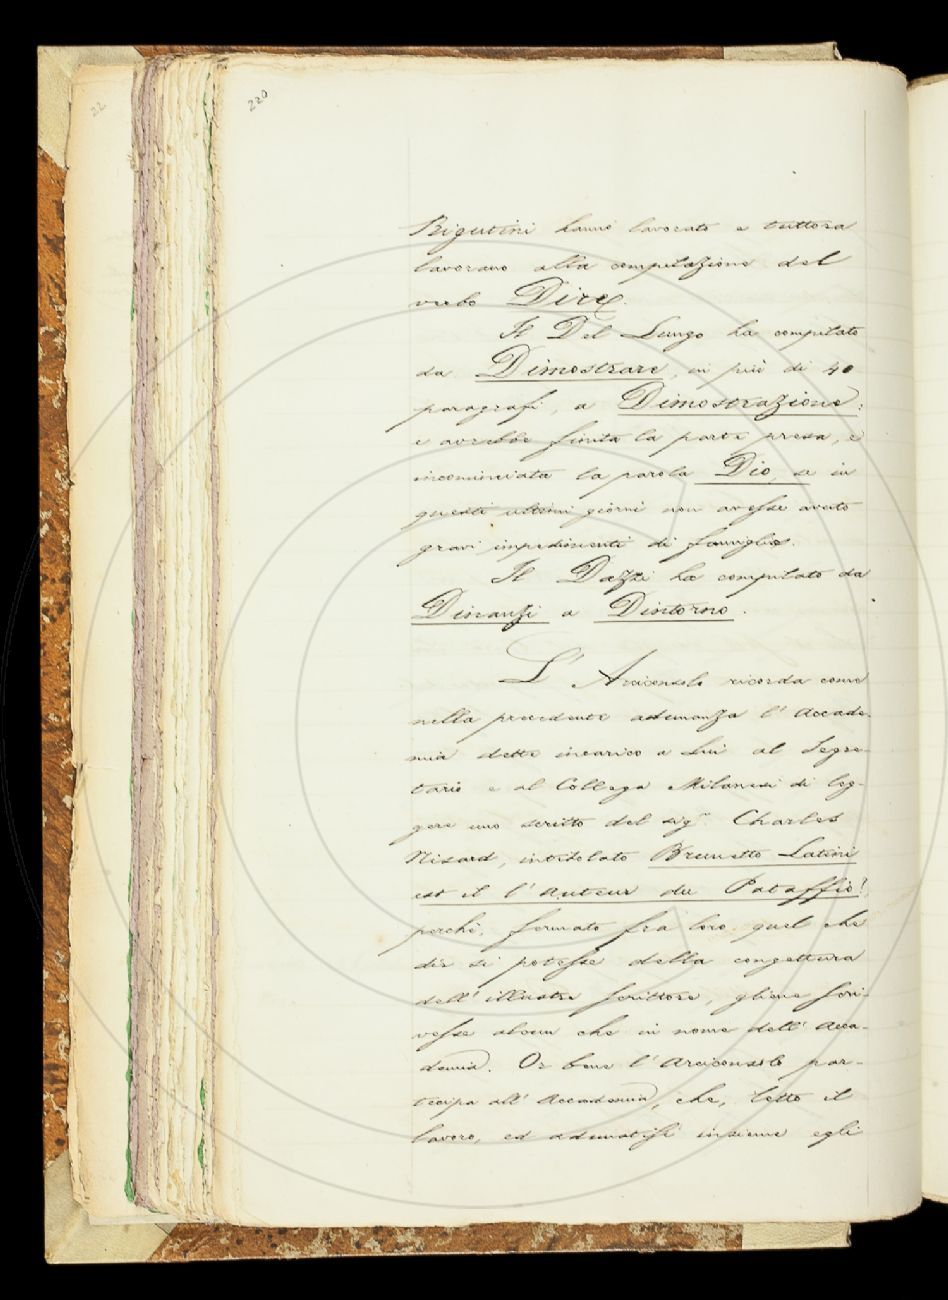 22
220
Rigutini hanno lavorato e tuttora
lavorano alla compilazione del
verbo Dire.
Il Del Lungo ha compilato
da Dimostrare, in più di 40
paragrafi, a Dimostrazione:
e avrebbe finita la parte presa, e
incominciata la parola Dio, se in
questi ultimi giorni non avesse avuto
gravi impedimenti di famiglia.
Il Dazzi ha compilato da
Dinanzi a Dintorno.
L' Arciconsolo ricorda come
nella precedente adunanza l' Accade-
mia dette incarico a Lui al Segre-
tario e al Collega Milanesi di leg-
gere uno scritto del sigr. Charles
Nisard, intitolato Brunetto Latini
est il l' auteur du Pataffio?
perchè, fermato fra loro quel che
dir si potesse della congettura
dell' illustre scrittore, gliene scri-
vesse alcun che in nome dell' Acca-
demia. Or bene l' Arciconsolo par-
tecipa all' Accademia, che, letto il
lavoro, ed adunatisi insieme egli